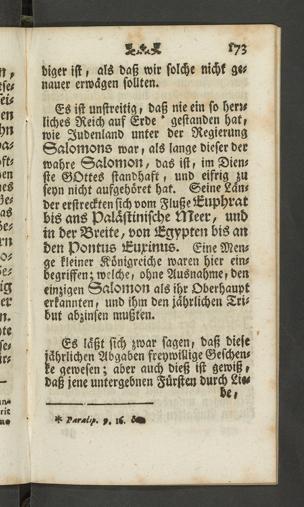 173
diger ist, als daß wir solche nicht ge-
nauer erwägen sollten.
Es ist unstreitig, daß nie ein so herr-
liches Reich auf Erde * gestanden hat,
wie Judenland unter der Regierung
Salomons war, als lange dieser der
wahre Salomon, das ist, im Dien-
ste GOttes standhaft, und eifrig zu
seyn nicht aufgehöret hat. Seine Län-
der erstreckten sich vom Fluße Euphrat
bis ans Palästinische Meer, und
in der Breite, von Egypten bis an
den Pontus Euxinus. Eine Men-
ge kleiner Königreiche waren hier ein-
begriffen; welche, ohne Ausnahme, den
einzigen Salomon als ihr Oberhaupt
erkannten, und ihm den jährlichen Tri-
but abzinsen mußten.
Es läßt sich zwar sagen, daß diese
jährlichen Abgaben freywillige Geschen-
ke gewesen; aber auch dieß ist gewiß,
daß jene untergebnen Fürsten durch Lie-
be,
* Paralip. 9. 16.